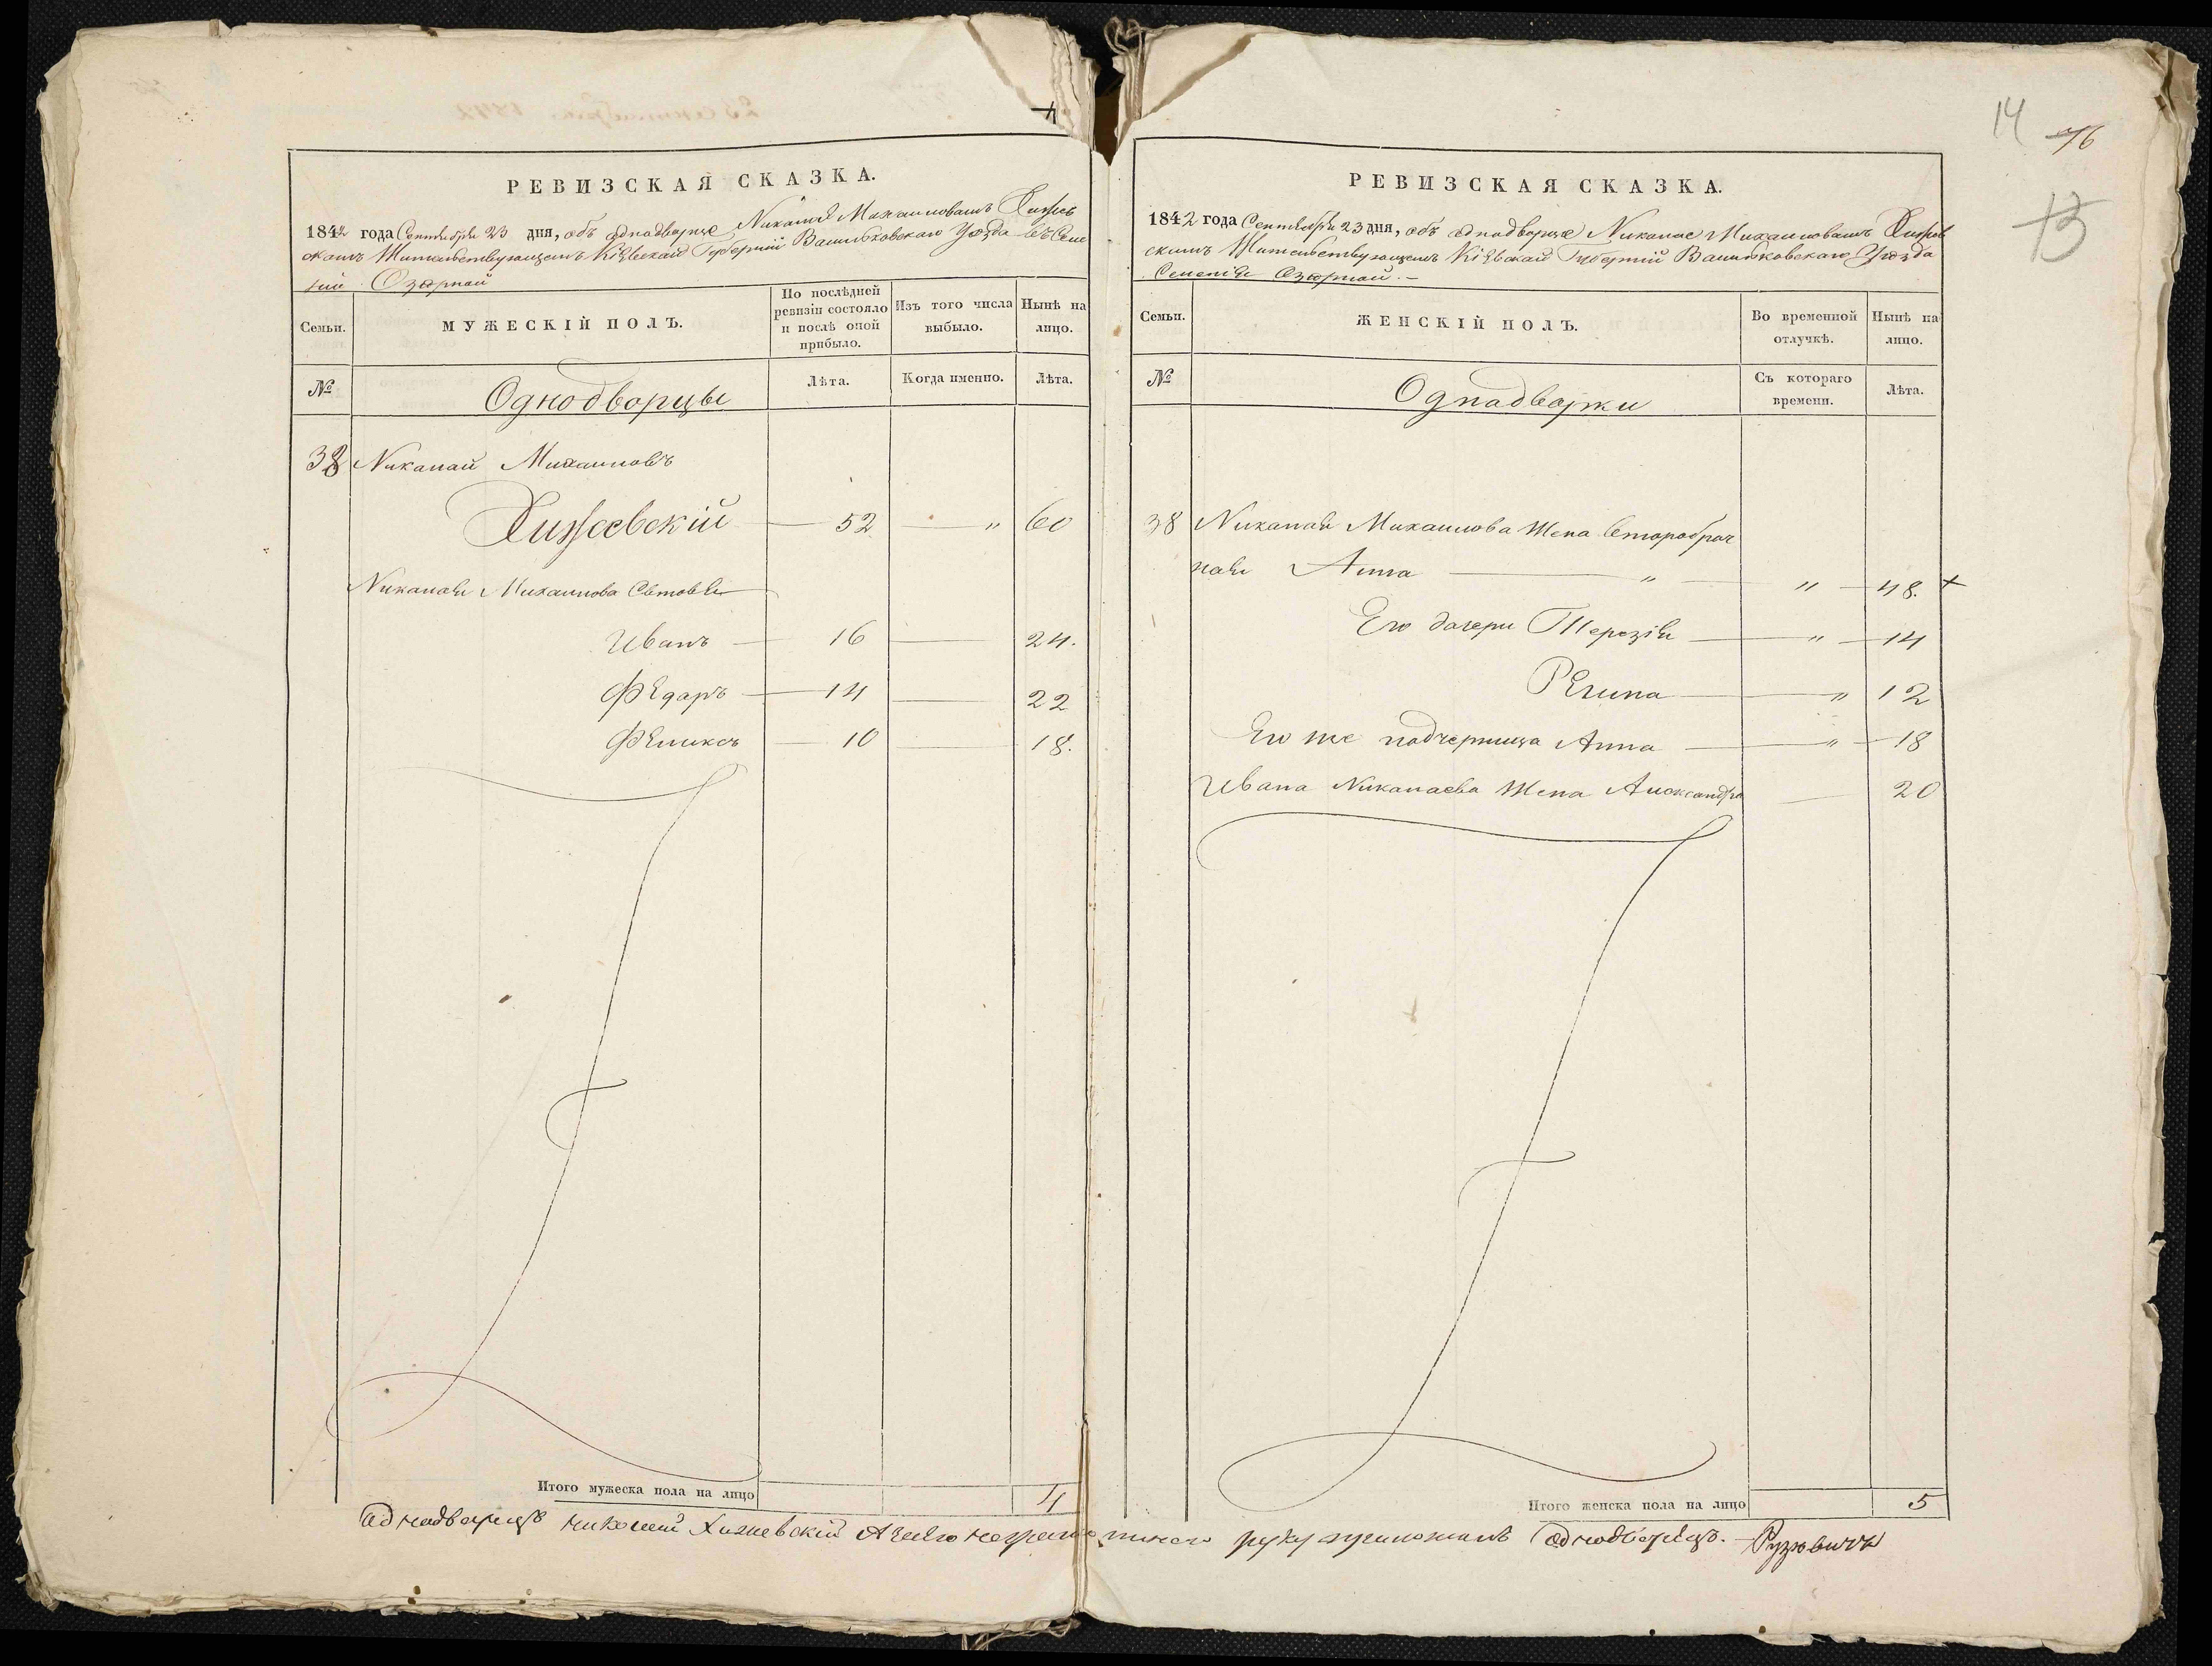 РЕВИЗСКАЯ СКАЗКА.
1842 года Сентября 23 дня, объ однадворце Никалай Михаиловамъ Хижев
скамъ Жительствующемъ Кіевскай Губерніи Васильковскаго Уезда въ Селе
ніи Озорнай
Семьи.
МУЖЕСКІЙ ПОЛЪ.
По послѣдней
ревизіи состояло
и послѣ оной
прибыло.
Изъ того числа
выбыло.
Нынѣ на
лицо.
№
Однодворцы
Лѣта.
Когда именно.
Лѣта.
38 Никалай Михаиловъ
Хижевскій — 52 — „ 60
Никалая Михаилова Сыновья
Иванъ — 16 — 24.
Федаръ — 14 — 22
Феликсъ — 10 — 18.
Итого мужеска пола на лицо
4
14
76
13
РЕВИЗСКАЯ СКАЗКА.
1842 года Сентября 23 дня, объ однадворце Никалае Михаиловамъ Хижев
скамъ Жительствующемъ Кіевскай Губерніи Васильковскаго Уезда
Селенія Озорнай. —
Семьи.
ЖЕНСКІЙ ПОЛЪ.
Во временной
отлучкѣ.
Нынѣ на
лицо.
№
Однадворки
Съ котораго
времени.
Лѣта.
38 Никалая Михаилова Жена вторoбрач
ная Анна — „ — „ — 48. +
Его дочери Терезія — „ — 14
Регина — „ 12
Его же падчерница Анна — „ — 18
Ивана Никалаева Жена Александра — 20
Итого женска пола на лицо
5
Однадворецъ николай Хижевскій А заего неграмотнаго руку приложилъ Однодворецъ. Рузовичъ